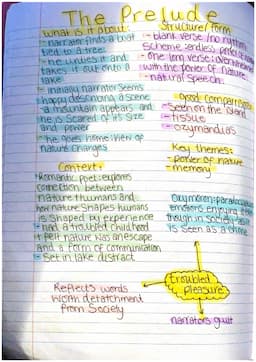 The Prelude
what is it about:
- narrator finds a boat
tied to a tree
- he unties it and
takes it out onto a
lake
- initially narrator seems
happy describing a scene
- a mountain appears and
he is scared of its size
and power
- he goes home: view of
nature changes
Structure/Form
- blank verse / no rhythm
scheme: endless, power of nature
- one long verse: overwhelmed
with the power of nature
- natural speech
good comparisons
- seen on the island
- tissue
- ozymandias
Key themes:
- power of nature
- memory
Context:
- Romantic poet: explores
connection between
nature + humans and
how nature shapes humans
- is shaped by experience
- had a troubled childhood
+ felt nature was an escape
and a form of communication
- Set in lake district
Oxymoron: paradoxical
emotions enjoying it even
though in society
is seen as a crime
troubled
pleasure
Reflects words
worth detatchment
from society
narrators guilt